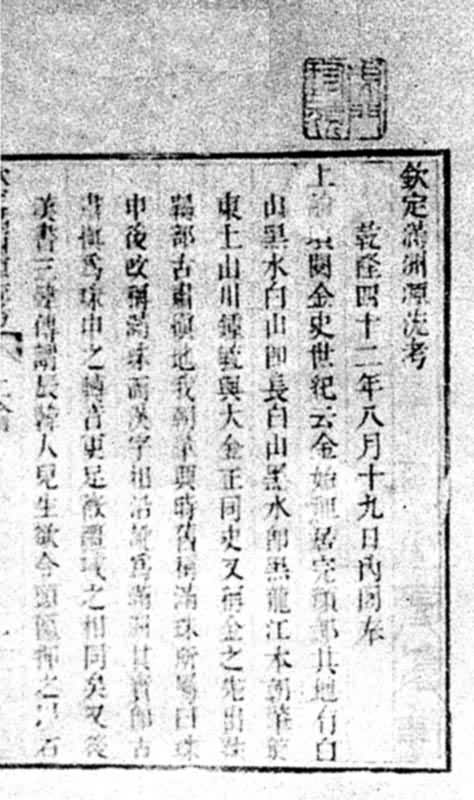 欽定滿洲源流考
乾隆四十二年八月十九日內閣奉
上諭頃閱金史世紀云金始祖居完顏部其地有白
山黑水白山卽長白山黑水卽黑龍江本朝肇興
東土山川鍾毓與大金正同史又稱金之先出靺
鞨部古肅愼地我朝肇興時舊稱滿珠所屬曰珠
申後改稱滿珠而漢字相沿訛爲滿洲其實卽古
肅愼爲珠申之轉音更足徵疆域之相同矣又後
漢書三韓傳謂辰韓人兒生欲令頭扁押之以石